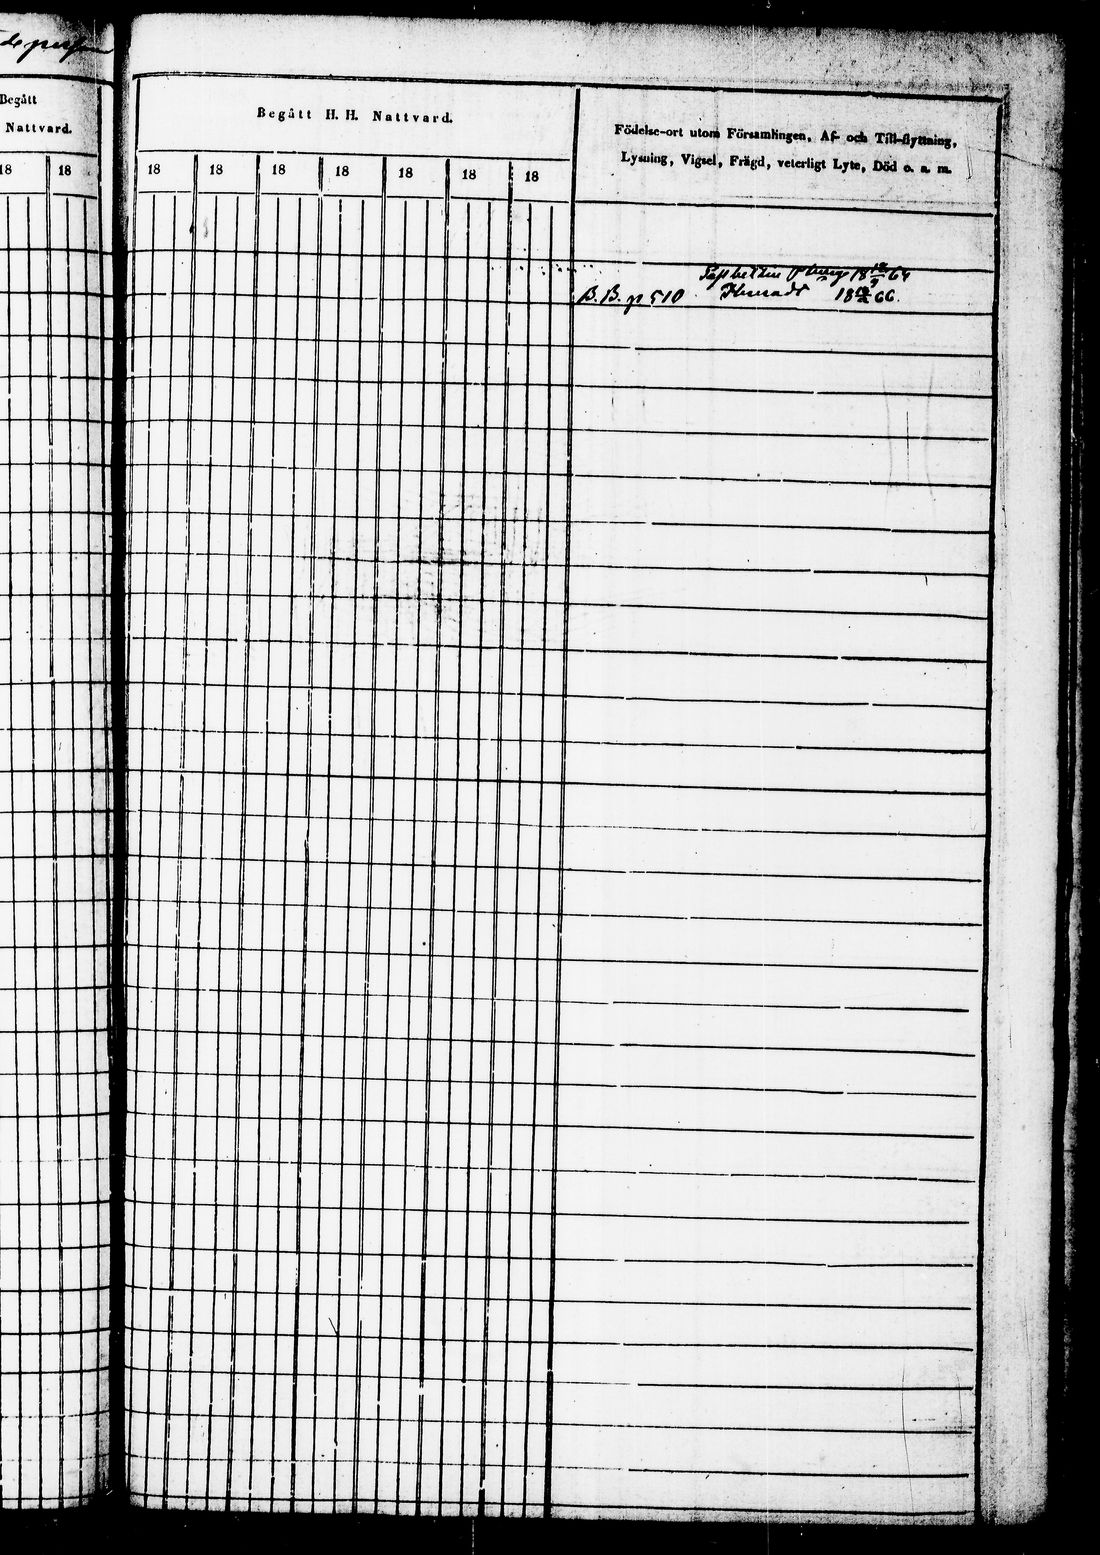 Begått
Nattvard.
18 18
Begått H. H. Nattvard.
18 18 18 18 18 18 18
Födelse-ort utom Församlingen, Af- och Till-flyttning,
Lysning, Vigsel, Frägd, veterligt Lyte, Död o. s. m.
18 64
B. B. p 510 18 66.